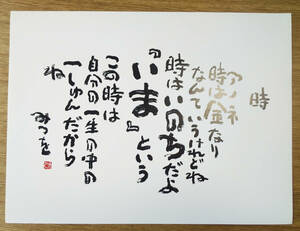 時
アノネ
時は金なり
なんていうけれどね
時はいのちだよ
『いま』という
この時は
自分の一生の中の
一しゅんだから
ね
みつを